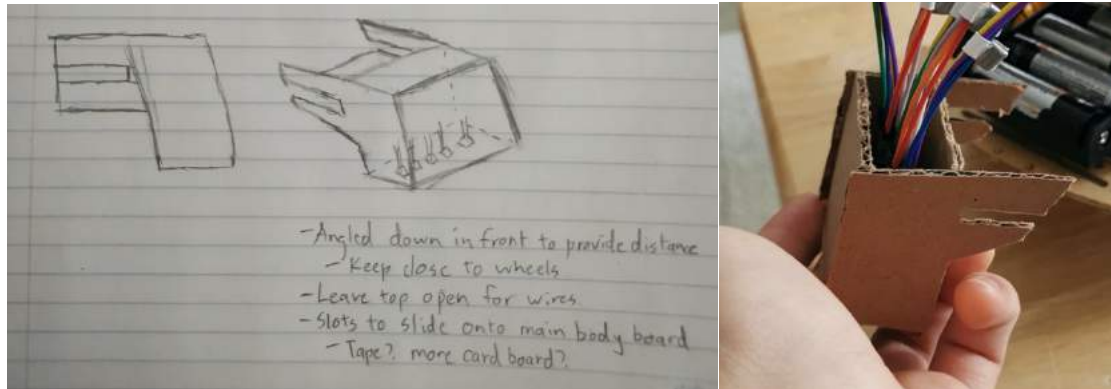 -Angled down in front to provide distance
-Keep close to wheels
-Leave top open for wires
-Slots to slide onto main body board
-Tape? more card board?